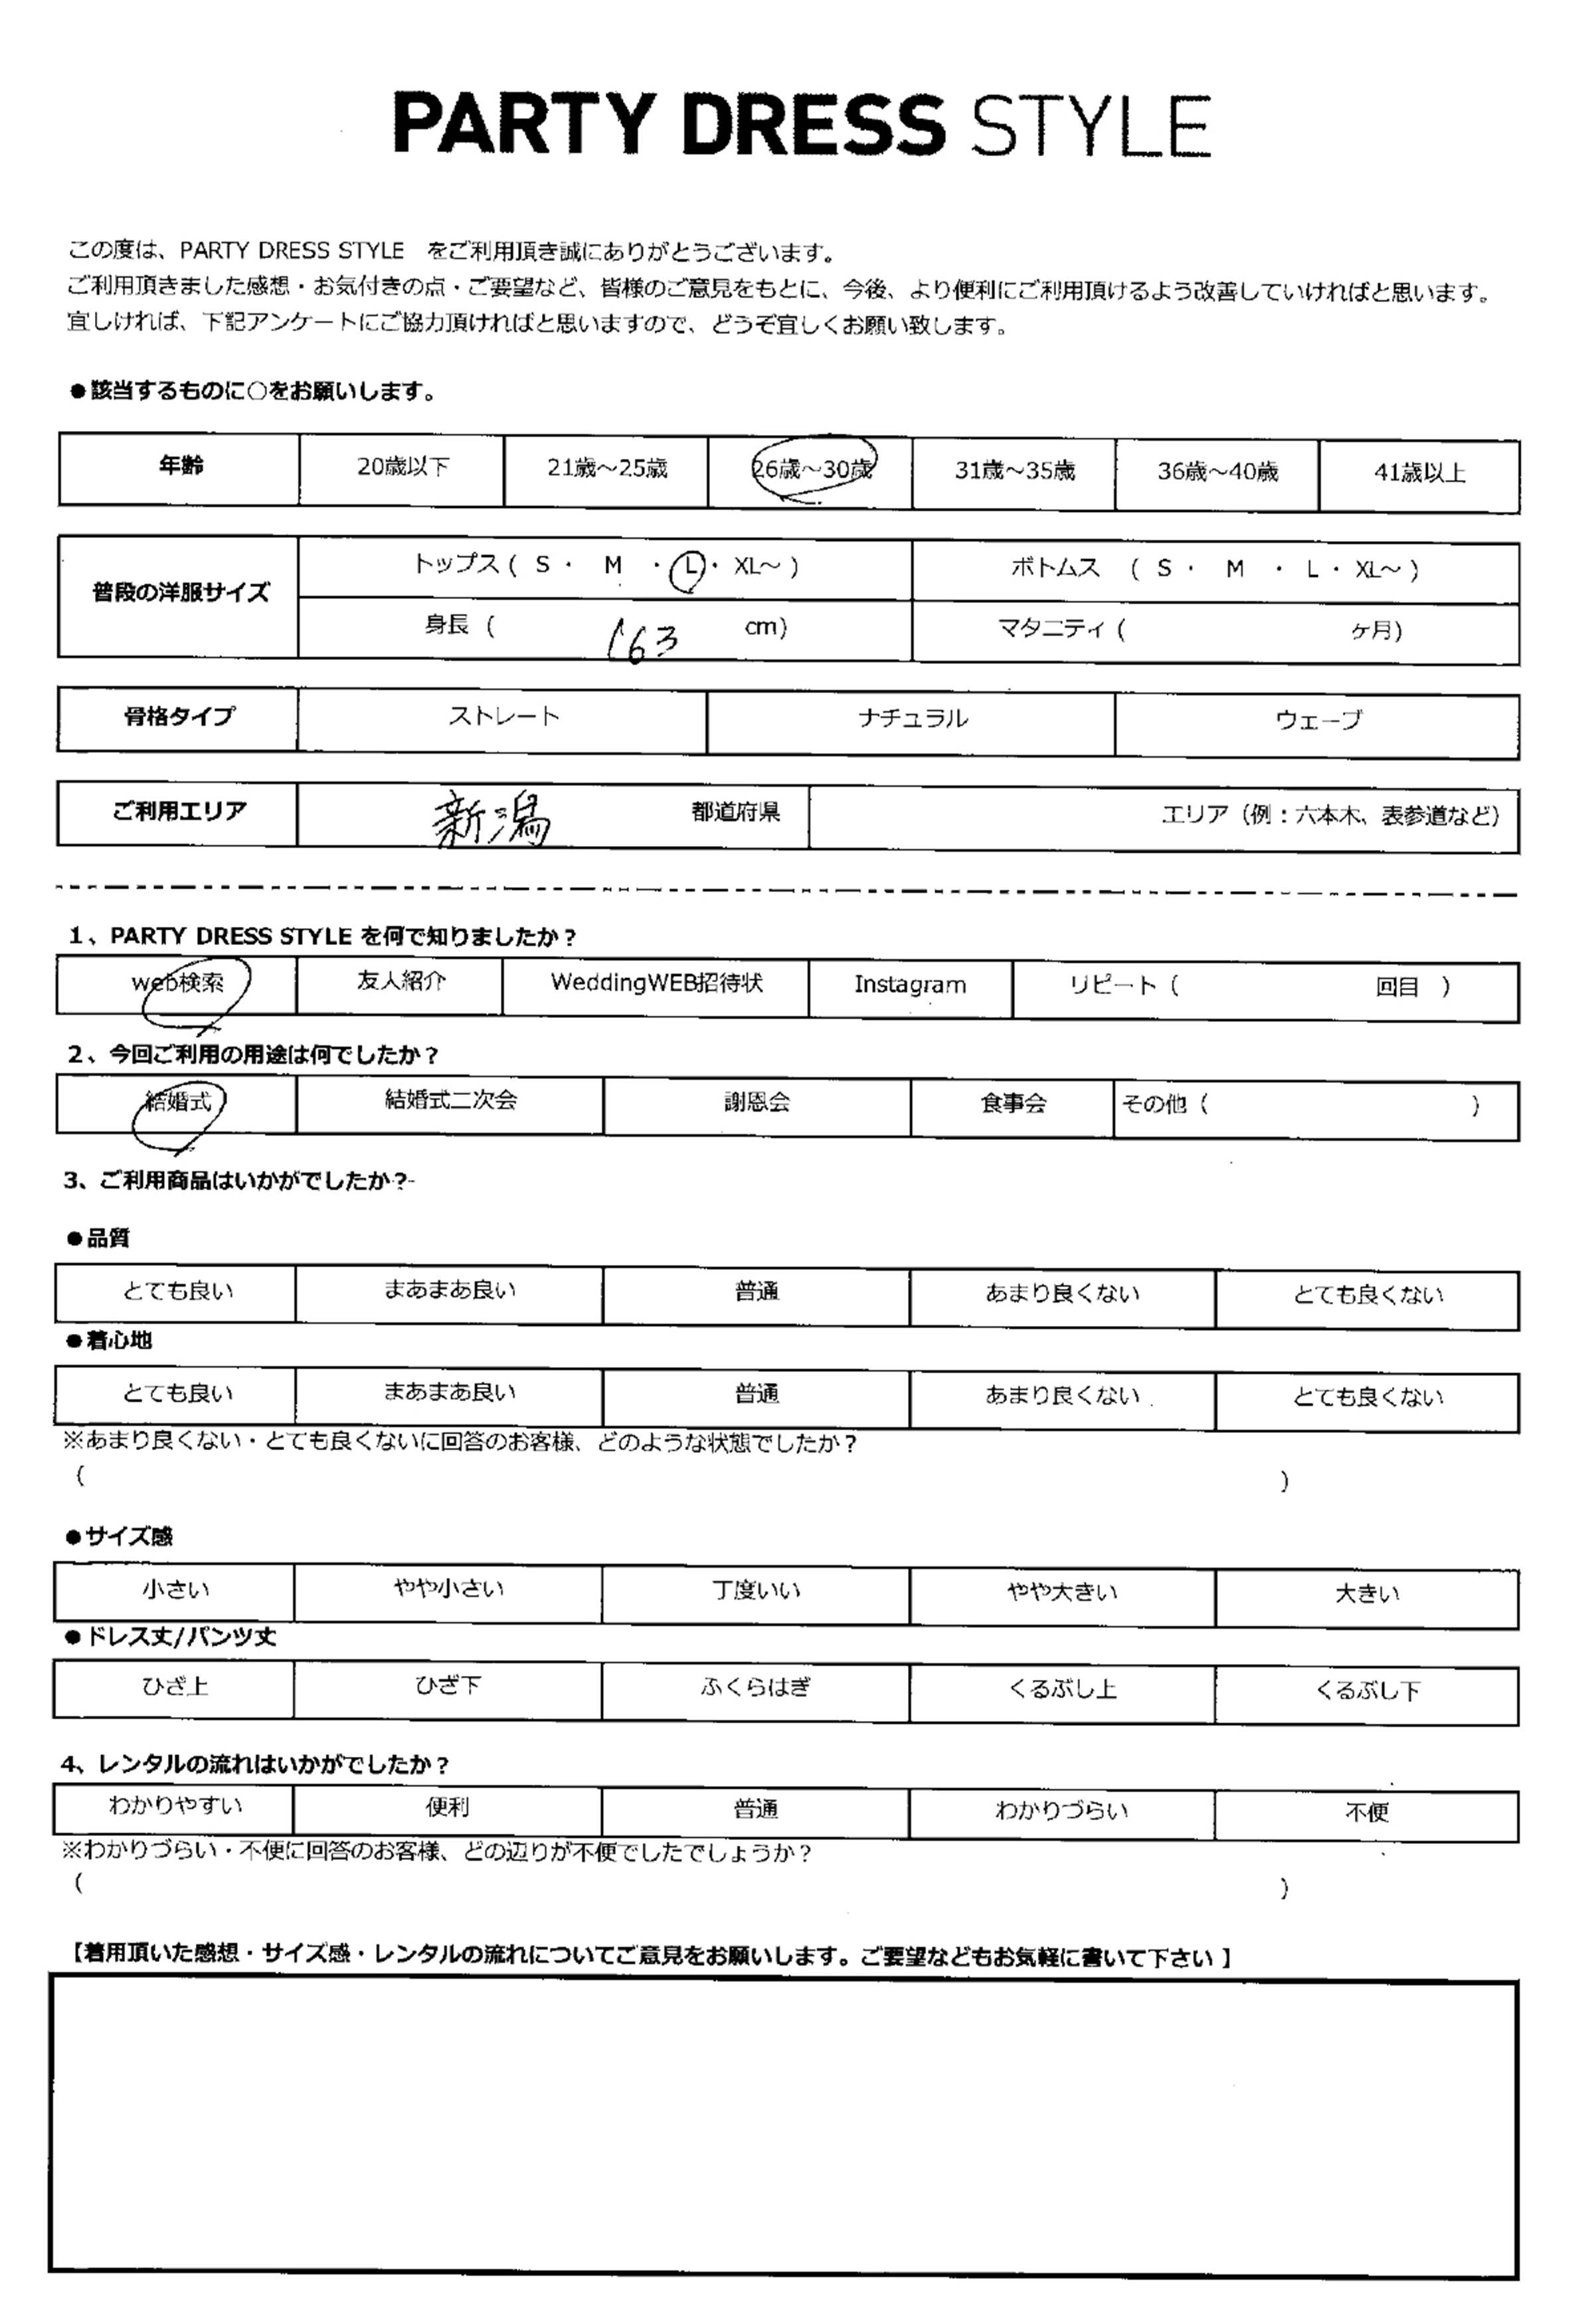 PARTY DRESS STYLE
この度は、PARTY DRESS STYLE をご利用頂き誠にありがとうございます。
ご利用頂きました感想・お気付きの点・ご要望など、皆様のご意見をもとに、今後、より便利にご利用頂けるよう改善していければと思います。
宜しければ、下記アンケートにご協力頂ければと思いますので、どうぞ宜しくお願い致します。
●該当するものに○をお願いします。
年齢 20歳以下 21歳～25歳 26歳～30歳 31歳～35歳 36歳～40歳 41歳以上
普段の洋服サイズ トップス ( S ・ M ・ L ・ XL～ ) ボトムス ( S ・ M ・ L ・ XL～ )
身長 ( 163 cm) マタニティ ( ヶ月)
骨格タイプ ストレート ナチュラル ウェーブ
ご利用エリア 新潟 都道府県 エリア（例：六本木、表参道など）
1、PARTY DRESS STYLE を何で知りましたか？
web検索 友人紹介 WeddingWEB招待状 Instagram リピート（ 回目 ）
2、今回ご利用の用途は何でしたか？
結婚式 結婚式二次会 謝恩会 食事会 その他（ ）
3、ご利用商品はいかがでしたか？
●品質
とても良い まあまあ良い 普通 あまり良くない とても良くない
●着心地
とても良い まあまあ良い 普通 あまり良くない とても良くない
※あまり良くない・とても良くないに回答のお客様、どのような状態でしたか？
（ ）
●サイズ感
小さい やや小さい 丁度いい やや大きい 大きい
●ドレス丈/パンツ丈
ひざ上 ひざ下 ふくらはぎ くるぶし上 くるぶし下
4、レンタルの流れはいかがでしたか？
わかりやすい 便利 普通 わかりづらい 不便
※わかりづらい・不便に回答のお客様、どの辺りが不便でしたでしょうか？
（ ）
【着用頂いた感想・サイズ感・レンタルの流れについてご意見をお願いします。ご要望などもお気軽に書いて下さい】